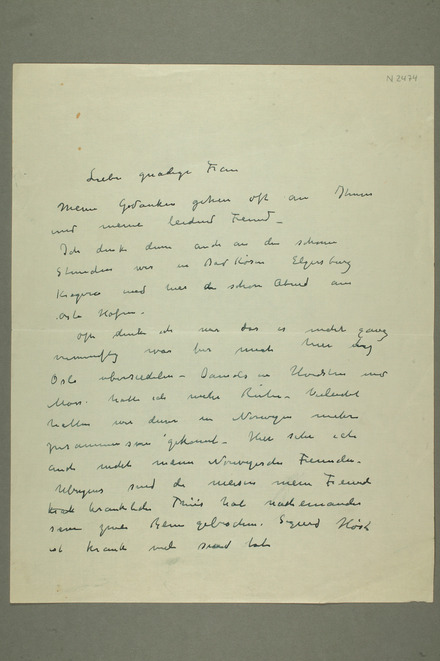 N 2474
Liebe gnädige Frau
Meine Gedanken gehen oft an Ihnen
und meine Freund –
Ich denke dann auch an die schönen
Stunden wo in Bad Kösen Elgersburg
Kragerö und hier den schönen Abend am
Oslo Hafen –
Oft denke ich war das es nicht ganz
vernünftig war bei nach hier
Oslo – Damals in und
Moss hatte ich mehr Ruhe – Vielleicht
hatten wir dann in Norwegen mehr
zusammen sein gekonnt – Hier sehe ich
auch nicht meine Norwegische Freunden –
Übrigens sind die meisten meine Freunde
krank Thiis hat nacheinander
seine zwei Beine gebrochen. Sigurd Höst
ist krank und